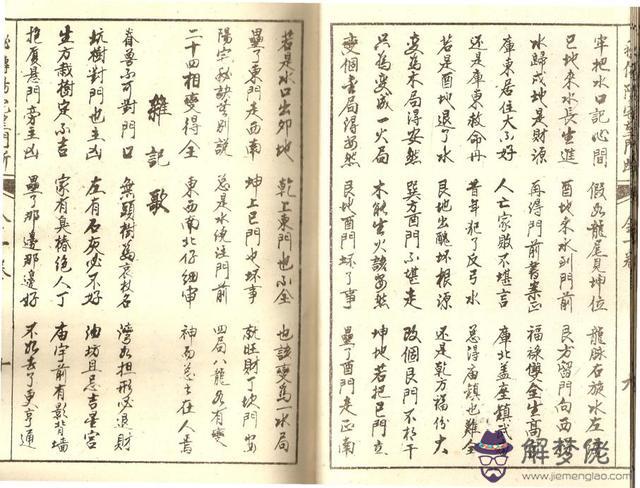 牢把水口記心間 假如龍尾見坤位 龍脉石旋水左
巳地來水長生進 酉地來水到門前 艮方留門向西
水歸戌地是財源 再得門前書案正 福祿雙全生高
庫東居住大不好 人亡家敗不堪言 庫北蓋座鎮武
還是庫東救命丹 昔年犯了反弓水 急得庙鎮也難全
若是酉地退了水 艮地出醜坏根源 还是乾方福份大
变為木局得安然 巽方酉門不堪走 改個艮門不相干
只為变成一火局 木能生火談安然 坤地若把巳門立
变個書局得安然 艮地門坏了事 壘了酉門走正南
若是水口出卯地 乾上東門也不全 也該变為一水局
壘了東門走西南 坤上巳門也坏事 就旺財丁坎門安
陽宅秘訣别説 总是水繞注門前 四局八龍如有變
二十四相變得全 東西南北仔細审 神而总之在人焉
雜記歌
眷兽不可對門口 無頭樹為哀杖名 灣如担形必退財
坑樹對門也主凶 左右有石灰必不好 油坊且忌吉星宫
生方栽樹定不吉 家有臭椿绝人丁 庙宇前有影背墙
抱厦悬門旁主凶 壘了那邊那邊好 不如去了更亨通
解梦佬
www.jiemenglao.com